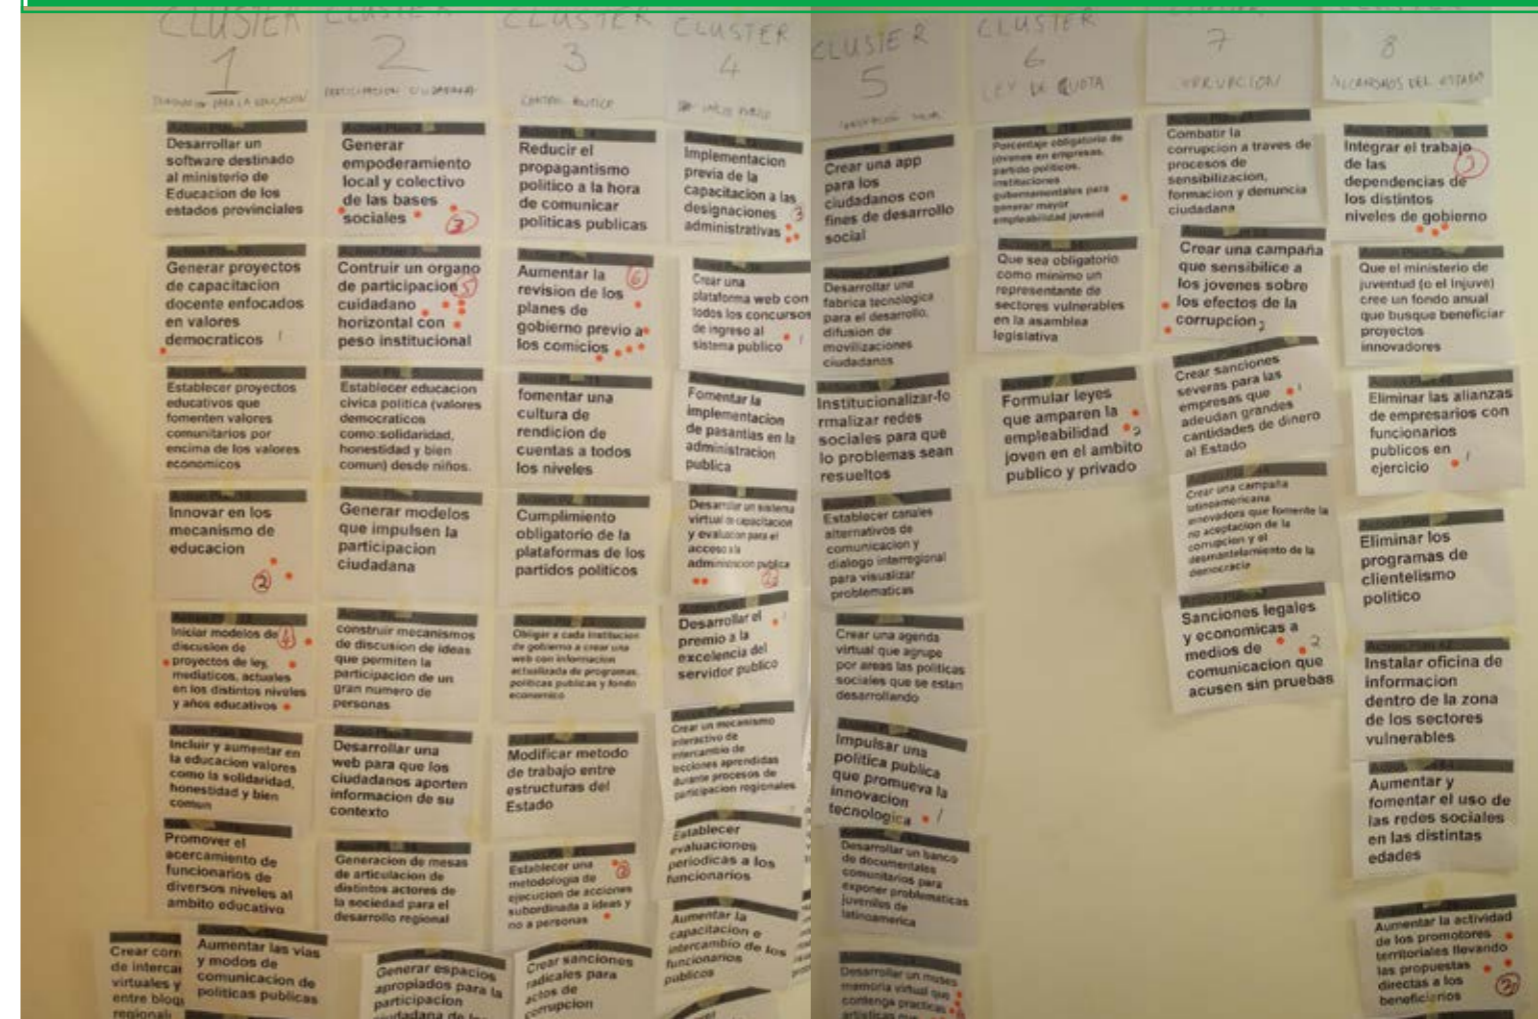 CLUSTER
1
CLUSTER
2
PARTICIPACION CIUDADANA
CLUSTER
3
CONTROL POLITICO
CLUSTER
4
CLUSTER
5
CLUSTER
6
LEY DE QUOTA
7
CORRUPCION
8
Desarrollar un
software destinado
al ministerio de
Educacion de los
estados provinciales
Generar proyectos
de capacitacion
docente enfocados
en valores
democraticos
Establecer proyectos
educativos que
fomenten valores
comunitarios por
encima de los valores
economicos
Innovar en los
mecanismo de
educacion
2
Iniciar modelos de
discusion de
proyectos de ley,
mediaticos, actuales
en los distintos niveles
y años educativos
4
Incluir y aumentar en
la educacion valores
como la solidaridad,
honestidad y bien
comun
Promover el
acercamiento de
funcionarios de
diversos niveles al
ambito educativo
Crear com
de intercar
virtuales y
entre blogs
regionali
Aumentar las vias
y modos de
comunicacion de
politicas publicas
Generar
empoderamiento
local y colectivo
de las bases
sociales
3
Contruir un organo
de participacion
cuidadano
horizontal con
peso institucional
5
Establecer educacion
civica politica (valores
democraticos
como:solidaridad,
honestidad y bien
comun) desde niños.
Generar modelos
que impulsen la
participacion
ciudadana
construir mecanismos
de discusion de ideas
que permiten la
participacion de un
gran numero de
personas
Desarrollar una
web para que los
ciudadanos aporten
informacion de su
contexto
Generacion de mesas
de articulacion de
distintos actores de
la sociedad para el
desarrollo regional
Generar espacios
apropiados para la
participacion
ciudadana de
Reducir el
propagantismo
politico a la hora
de comunicar
politicas publicas
Aumentar la
revision de los
planes de
gobierno previo a
los comicios
6
fomentar una
cultura de
rendicion de
cuentas a todos
los niveles
Cumplimiento
obligatorio de la
plataformas de los
partidos politicos
Obligar a cada institucion
de gobierno a crear una
web con informacion
actualizada de programas,
politicas publicas y fondo
economico
Modificar metodo
de trabajo entre
estructuras del
Estado
Establecer una
metodologia de
ejecucion de acciones
subordinada a ideas y
no a personas
Crear sanciones
radicales para
actos de
corrupcion
Implementacion
previa de la
capacitacion a las
designaciones
administrativas
3
Crear una
plataforma web con
todos los concursos
de ingreso al
sistema publico
Fomentar la
implementacion
de pasantias en la
administracion
publica
Desarrollar un sistema
virtual de capacitacion
y evaluacion para el
acceso a la
administracion publica
Desarrollar el
premio a la
excelencia del
servidor publico
Crear un mecanismo
interactivo de
intercambio de
lecciones aprendidas
durante procesos de
participacion regionales
Establecer
evaluaciones
periodicas a los
funcionarios
Aumentar la
capacitacion e
intercambio de los
funcionarios
publicos
Crear una app
para los
ciudadanos con
fines de desarrollo
social
Desarrollar una
fabrica tecnologica
para el desarrollo,
difusion de
movilizaciones
ciudadanas
Institucionalizar-fo
rmalizar redes
sociales para que
lo problemas sean
resueltos
Establecer canales
alternativos de
comunicacion y
dialogo interregional
para visualizar
problematicas
Crear una agenda
virtual que agrupe
por areas las politicas
sociales que se estan
desarrollando
Impulsar una
politica publica
que promueva la
innovacion
tecnologica
Desarrollar un banco
de documentales
comunitarios para
exponer problematicas
juveniles de
latinoamerica
Desarrollar un museo
memoria virtual que
contenga practicas
artisticas que
Porcentaje obligatorio de
jóvenes en empresas,
partido politicos,
instituciones
gubernamentales para
generar mayor
empleabilidad juvenil
Que sea obligatorio
como minimo un
representante de
sectores vulnerables
en la asamblea
legislativa
Formular leyes
que amparen la
empleabilidad
joven en el ambito
publico y privado
2
Combatir la
corrupcion a traves de
procesos de
sensibilizacion,
formacion y denuncia
ciudadana
Crear una campaña
que sensibilice a
los jovenes sobre
los efectos de la
corrupcion
2
Crear sanciones
severas para las
empresas que
adeudan grandes
cantidades de dinero
al Estado
Crear una campaña
latinoamericana
innovadora que fomente la
no aceptacion de la
corrupcion y el
desmantelamiento de la
democracia
Sanciones legales
y economicas a
medios de
comunicacion que
acusen sin pruebas
2
Integrar el trabajo
de las
dependencias de
los distintos
niveles de gobierno
Que el ministerio de
juventud (o el Injuve)
cree un fondo anual
que busque beneficiar
proyectos
innovadores
Eliminar las alianzas
de empresarios con
funcionarios
publicos en
ejercicio
Eliminar los
programas de
clientelismo
politico
Instalar oficina de
informacion
dentro de la zona
de los sectores
vulnerables
Aumentar y
fomentar el uso de
las redes sociales
en las distintas
edades
Aumentar la actividad
de los promotores
territoriales llevando
las propuestas
directas a los
beneficiarios